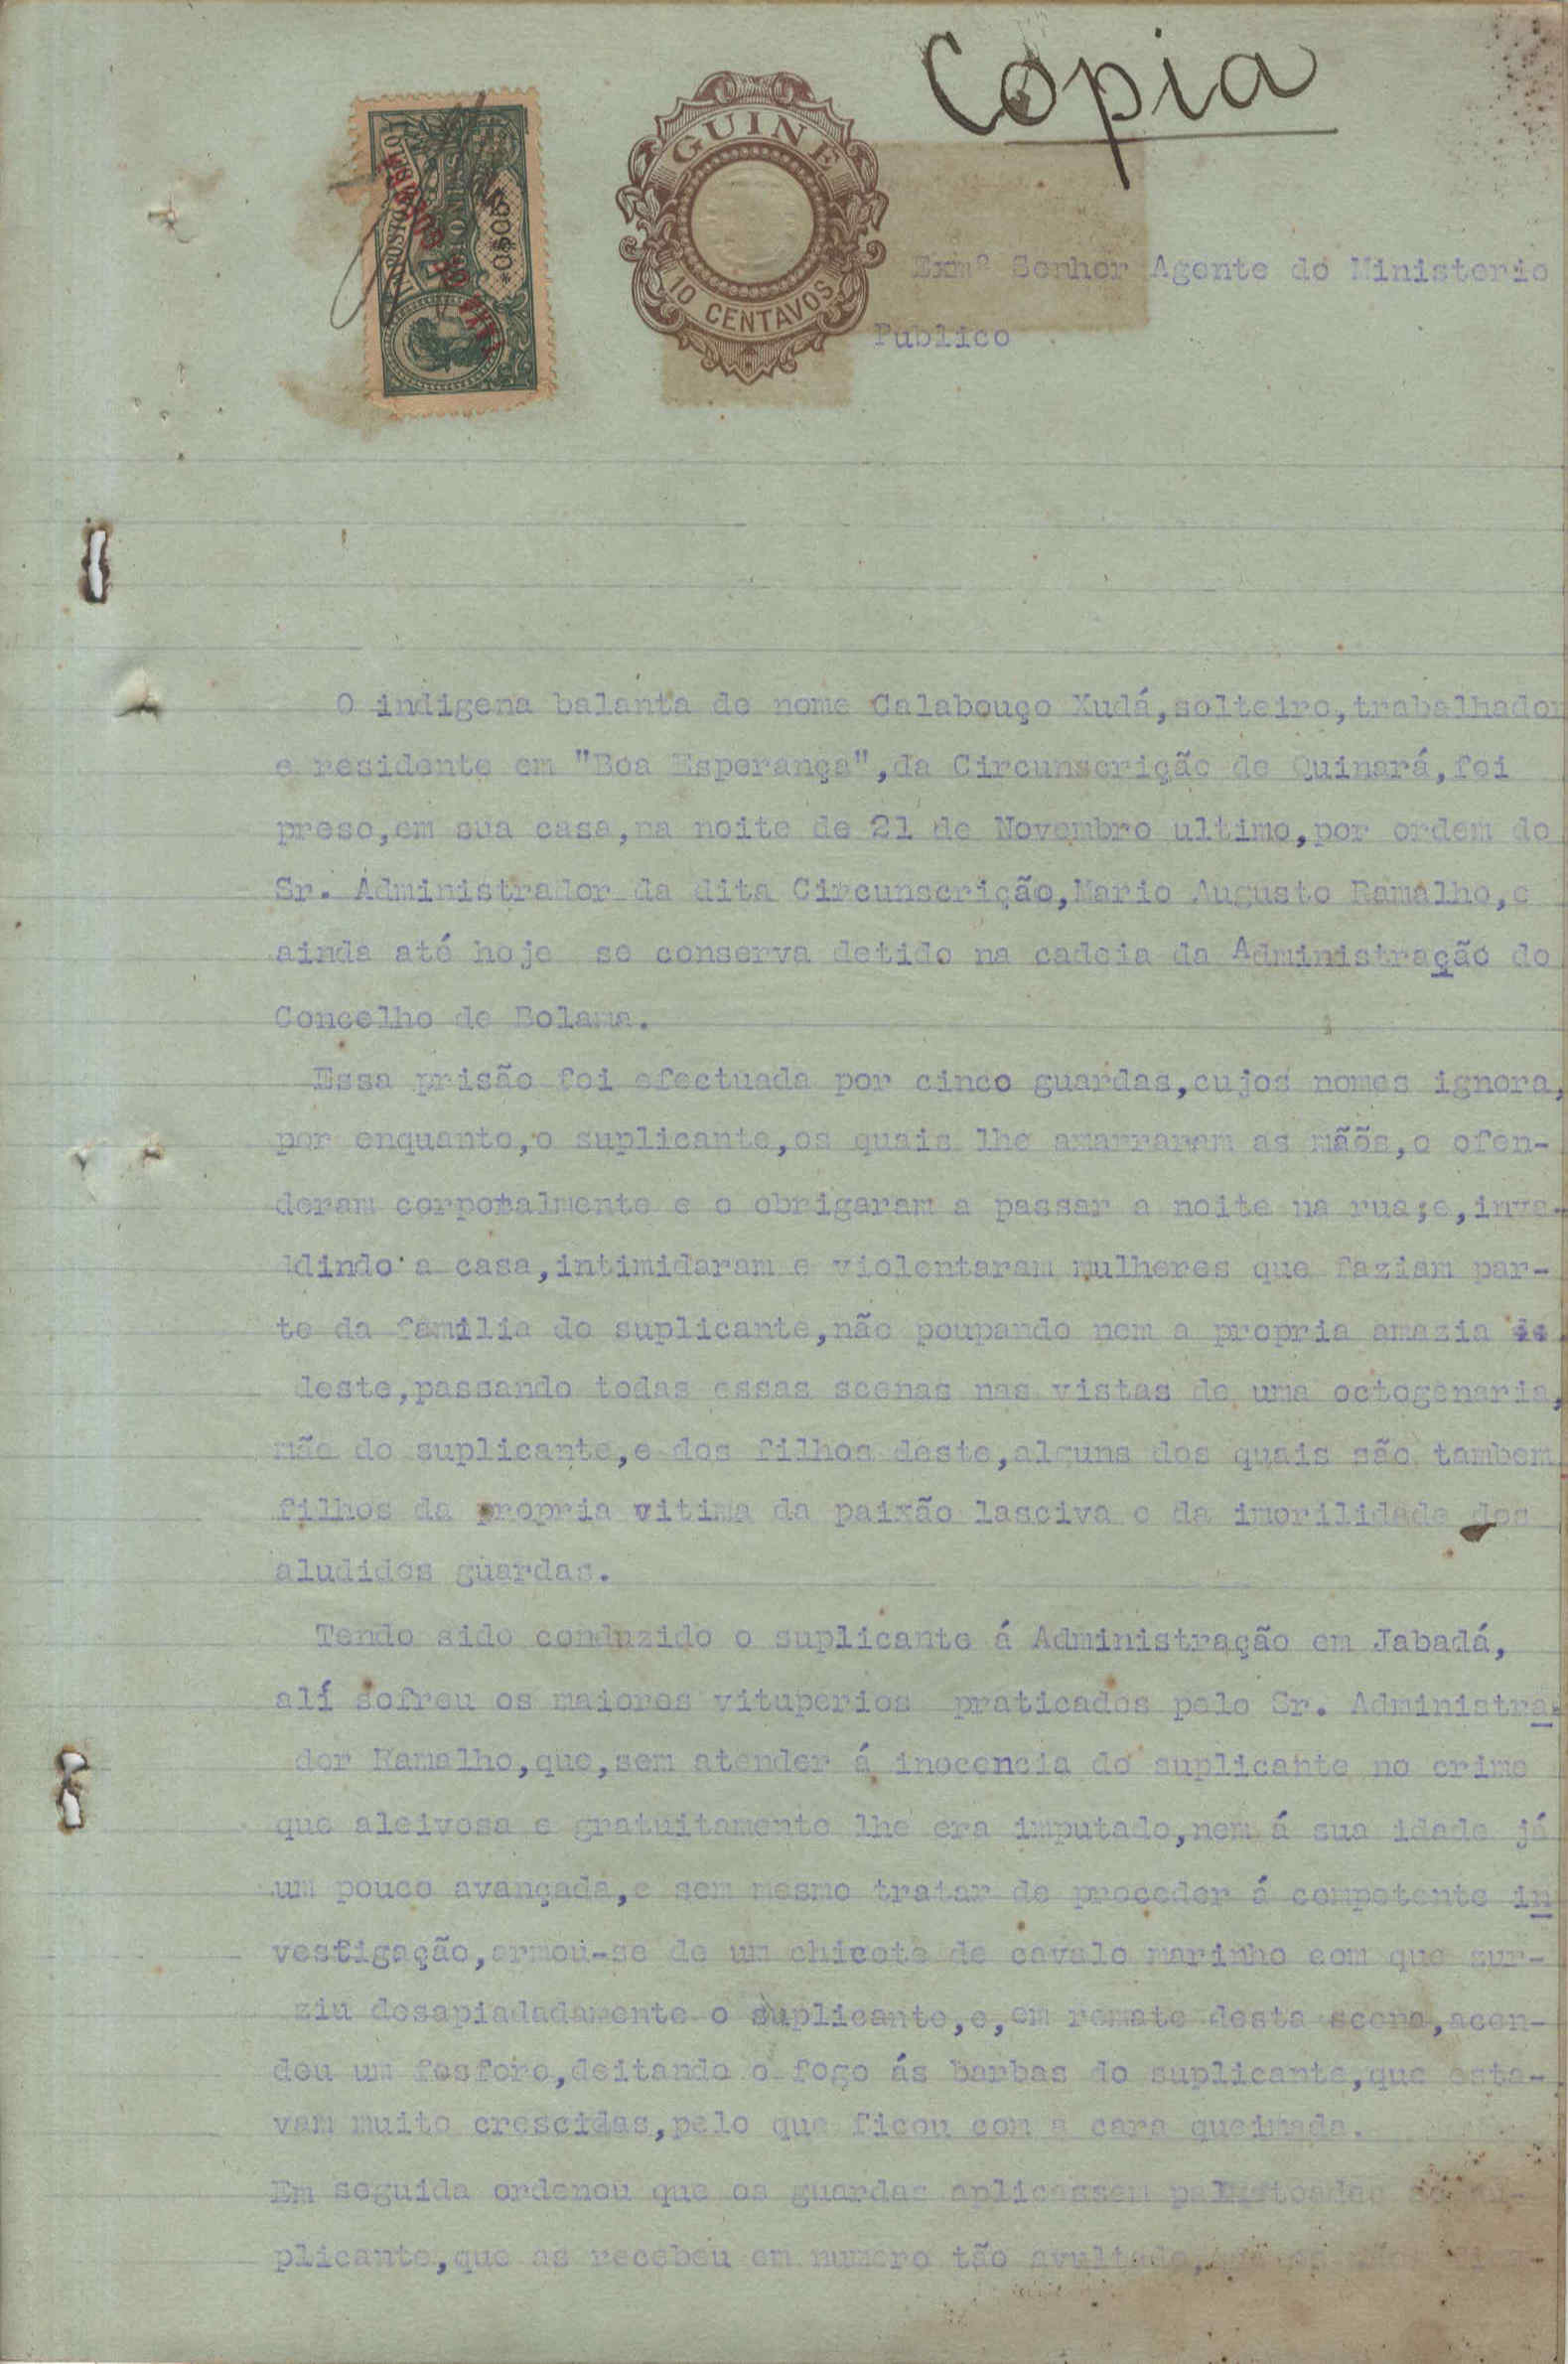 Copia
GUINE
10 CENTAVOS
IMPOSTO DO SELO
*0$05*
Exmº Senhor Agente do Ministerio
Publico
O indigena balanta de nome Calabouço Xudá,solteiro,trabalhador
e residente em "Boa Esperança",da Circunscrição de Quinará,foi
preso,em sua casa,na noite de 21 de Novembro ultimo,por ordem do
Sr. Administrador da dita Circunscrição,Mario Augusto Ramalho,e
ainda até hoje se conserva detido na cadeia da Administração do
Concelho de Bolama.
Essa prisão foi efectuada por cinco guardas,cujos nomes ignora,
por enquanto,o suplicante,os quais lhe amarraram as mãõs,o ofen-
deram corporalmente e o obrigaram a passar a noite na rua;e,inva-
dindo a casa,intimidaram e violentaram mulheres que faziam par-
te da familia do suplicante,não poupando nem a propria amazia de
deste,passando todas essas scenas nas vistas de uma octogenaria,
mãe do suplicante,e dos filhos deste,alguns dos quais são tambem
filhos da propria vitima da paixão lasciva e da imorilidade dos
aludidos guardas.
Tendo sido conduzido o suplicante á Administração em Jabadá,
alí sofreu os maiores vituperios praticados pelo Sr. Administra-
dor Ramalho,que,sem atender á inocencia do suplicante no crime
que aleivosa e gratuitamente lhe era imputado,nem á sua idade já
um pouco avançada,e sem mesmo tratar de proceder á competente in
vestigação,armou-se de um chicote de cavalo marinho com que zur-
ziu desapiadadamente o suplicante,e,em remate desta scena,acen-
deu um fosforo,deitando o fogo ás barbas do suplicante,que esta-
vam muito crescidas,pelo que ficou com a cara queimada.
Em seguida ordenou que os guardas aplicassem palmatoadas ao su-
plicante,que as recebeu em numero tão avultado,